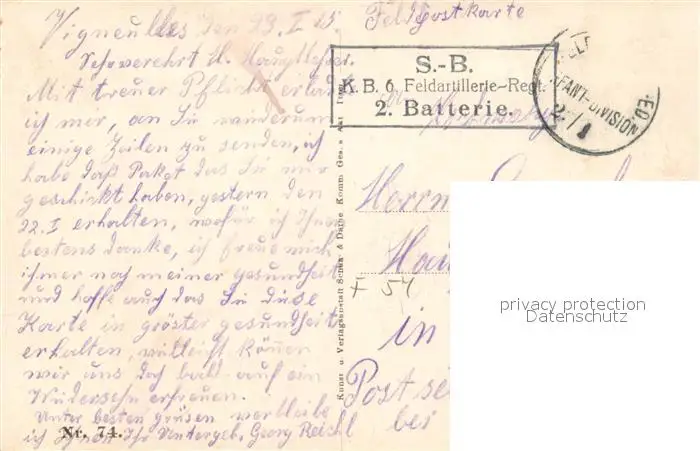 Vigneulles den 23.I.15
Feldpostkarte
Sehrverehrt H. Hauptlehrer.
Mit treuer Pflicht erlaub
ich mer, an Sie wiederum
einige Zeilen zu senden, ich
habe daß Paket das Sie mir
geschickt haben, gestern den
22.I erhalten, wofür ich Ihnen
bestens danke, ich freue mich
ihmer noch meiner gesundheit
und hoffe auch das Sie diese
Karte in gröster gesundheit
erhalten, villeicht können
wir uns doch bald auf ein
Widersehn erfreuen.
Unter besten grüsen verbleibe
ich Ihnen Ihr Untergeb, Georg Reichl
Nr. 74.
Kunst u. Verlagsanstalt & Dathe Komm. Ges. a. Akt.
S.-B.
K. B. 6. Feldartillerie-Regt.
2. Batterie.
FANT-DIVISION
Herrn
F 54
in
Post
bei
privacy protection
Datenschutz